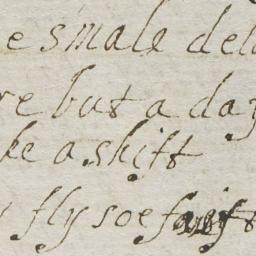 e smale del
re but a day
ke a shift
fly soe